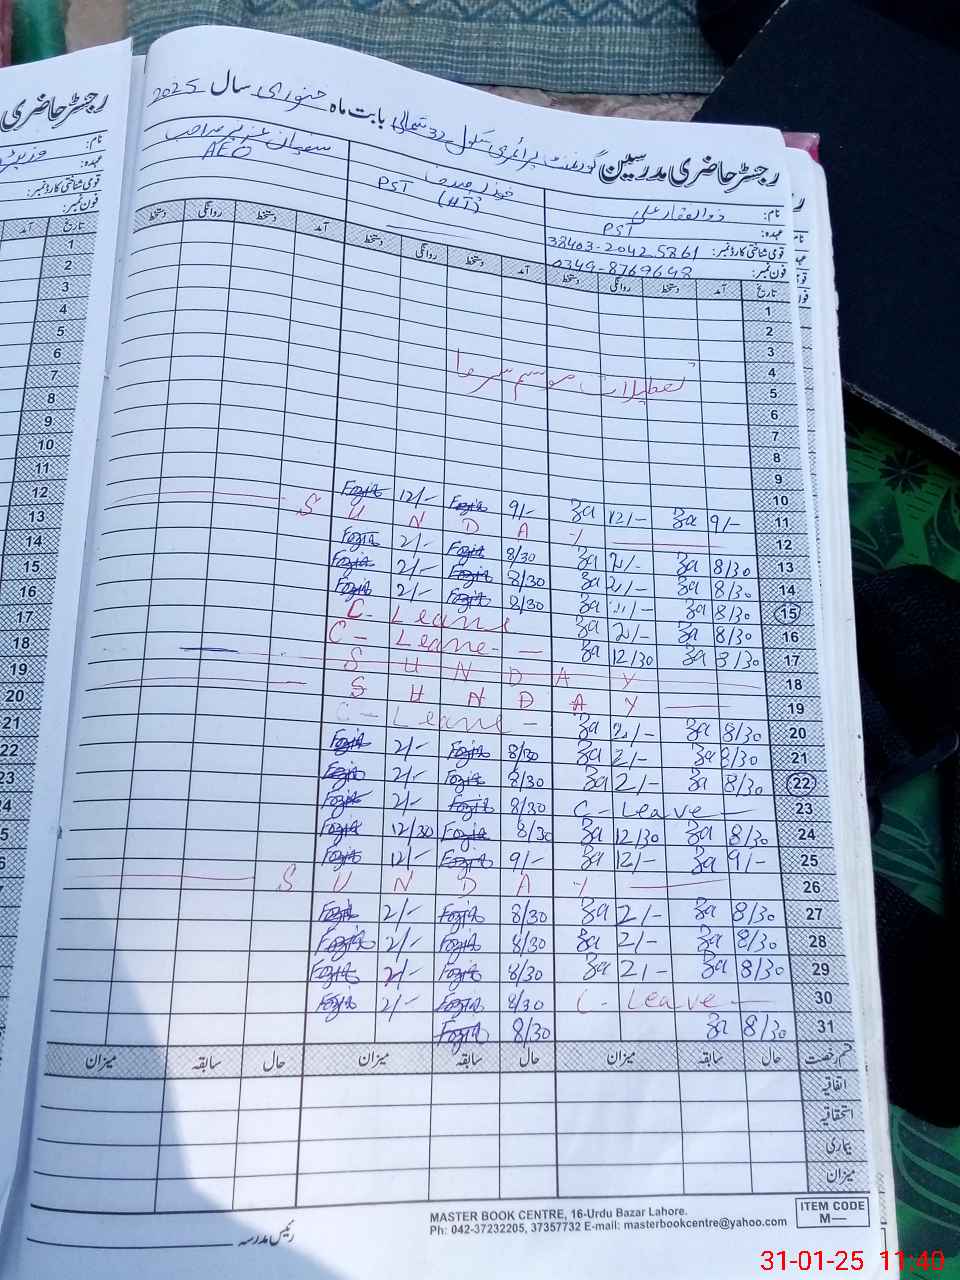 رجسٹر حاضری مدرسین گورنمنٹ پرائمری سکول 32 شمالی بابت ماہ جنوری سال 2025
نام: ذوالفقار علی
عہدہ: PST
قومی شناختی کارڈ نمبر: 38403-20425861
فون نمبر: 0349-8769648
PST
(HT)
AEO
تاریخ آمد دستخط روانگی دستخط آمد دستخط روانگی دستخط آمد دستخط روانگی دستخط
1
2
3
4
تعطیلات موسم سرما
5
6
7
8
9
10
11 9/- 12/- 9/- Fozia 12/- Fozia
12 S U N D A Y
13 8/30 2/- 8/30 Fozia 2/- Fozia
14 8/30 2/- 8/30 Fozia 2/- Fozia
15 8/30 2/- 8/30 Fozia 2/- Fozia
16 8/30 2/- C-Leave
17 8/30 12/30 C-Leave
18 S U N D A Y
19 S U N D A Y
20 8/30 2/- C-Leave
21 8/30 2/- 8/30 Fozia 2/- Fozia
22 8/30 2/- 8/30 Fozia 2/- Fozia
23 C-Leave 8/30 Fozia 2/- Fozia
24 8/30 12/30 8/30 Fozia 12/30 Fozia
25 9/- 12/- 9/- Fozia 12/- Fozia
26 S U N D A Y
27 8/30 2/- 8/30 Fozia 2/- Fozia
28 8/30 2/- 8/30 Fozia 2/- Fozia
29 8/30 2/- 8/30 Fozia 2/- Fozia
30 C-Leave 8/30 Fozia 2/- Fozia
31 8/30 8/30 Fozia
قسم رخصت حال سابقہ میزان حال سابقہ میزان حال سابقہ میزان
اتفاقیہ
استحقاقیہ
بیماری
میزان
رئیس مدرسہ
MASTER BOOK CENTRE, 16-Urdu Bazar Lahore.
Ph: 042-37232205, 37357732 E-mail: masterbookcentre@yahoo.com
ITEM CODE
M—
رجسٹر حاضری
نام:
عہدہ:
قومی شناختی کارڈ نمبر:
فون نمبر:
تاریخ آمد
1
2
3
4
5
6
7
8
9
10
11
12
13
14
15
16
17
18
19
20
21
22
23
31-01-25 11:40